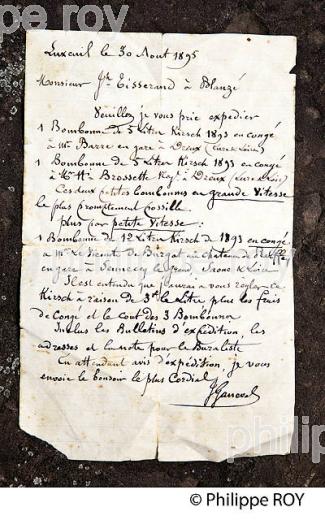 Luxeuil le 30 Aout 1895
Monsieur Jh Tisserand à
Veuillez je vous prie expedier
1 Bombonne de 5 Litres Kirsch 1893 en congé
à Mr Barre en gare à Dreux (Eure & Loir)
1 Bombonne de 5 Litres Kirsch 1893 en congé
à Brossette à Dreux (Eure & Loir)
Ces deux petites bombonnes en grande Vitesse
le plus promptement possible.
plus par petite Vitesse :
1 Bombonne de 12 Litres Kirsch de 1893 en congé
a Mr Le Vicomte de au chateau de
en gare à Sennecey le grand, Saone & Loire
Il est entendu que j'aurai a vous regler ce
Kirsch à raison de 3f le Litre plus les frais
de Congé et le cout des 3 Bombonnes
Inclus les Bulletins d'expédition, les
adresses et la note pour le Buraliste
En attendant avis d'expédition, je vous
envoie le bonjour le plus Cordial
© Philippe ROY